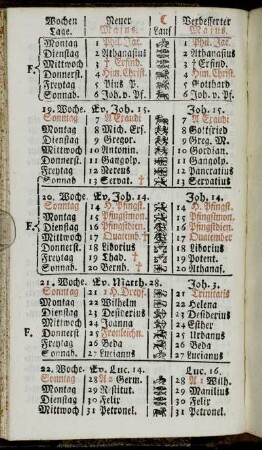 Wochen Neuer ☾ Verbesserter
Tage. Majus. Lauf Majus.
Montag 1 Phil. Jac. 1 Phil. Jac.
Dienstag 2 Athanasius 2 Athanasius
F. Mittwoch 3 † Erfind. 3 † Erfind.
Donnerst. 4 Him. Christ. 4 Him. Christ.
Freytag 5 Pius P. 5 Gotthard
Sonnab. 6 Joh. v. Pf. 6 Joh. v. Pf.
19. Woche. Ev. Joh. 15. Joh. 15.
Sonntag 7 A Exaudi 7 A Exaudi
Montag 8 Mich. Ers. 8 Gottfried
Dienstag 9 Gregor. 9 Greg. M.
Mittwoch 10 Antonin. 10 Gordian.
Donnerst. 11 Gangolp. 11 Gangolp.
Freytag 12 Nereus 12 Pancratius
Sonnab 13 Servat. † 13 Servatius
20. Woche. Ev. Joh. 14. Joh. 14.
Sonntag 14 H. Pfingst. 14 H. Pfingst.
Montag 15 Pfingstmon. 15 Pfingstmon.
Dienstag 16 Pfingstdien. 16 Pfingstdien.
F. Mittwoch 17 Quatemb † 17 Quatember
Donnerst. 18 Liborius 18 Liborius
Freytag 19 Thad. † 19 Potent.
Sonnab. 20 Bernh. † 20 Athanas.
21. Woche. Ev. Matth. 28. Joh. 3.
Sonntag 21 H. Dreyf. 21 Trinitatis
Montag 22 Wilhelm 22 Helena
Dienstag 23 Desiderius 23 Desiderius
Mittwoch 24 Joanna 24 Esther
F. Donnerst 25 Fronleichn. 25 Urbanus
Freytag 26 Beda 26 Beda
Sonnab. 27 Lucianus 27 Lucianus
22. Woche. Ev. Luc. 14. Luc. 16.
Sonntag 28 A 2 Germ. 28 A 1 Wilh.
Montag 29 Restitut. 29 Manilius
Dienstag 30 Felix 30 Felix
Mittwoch 31 Petronel. 31 Petronel.